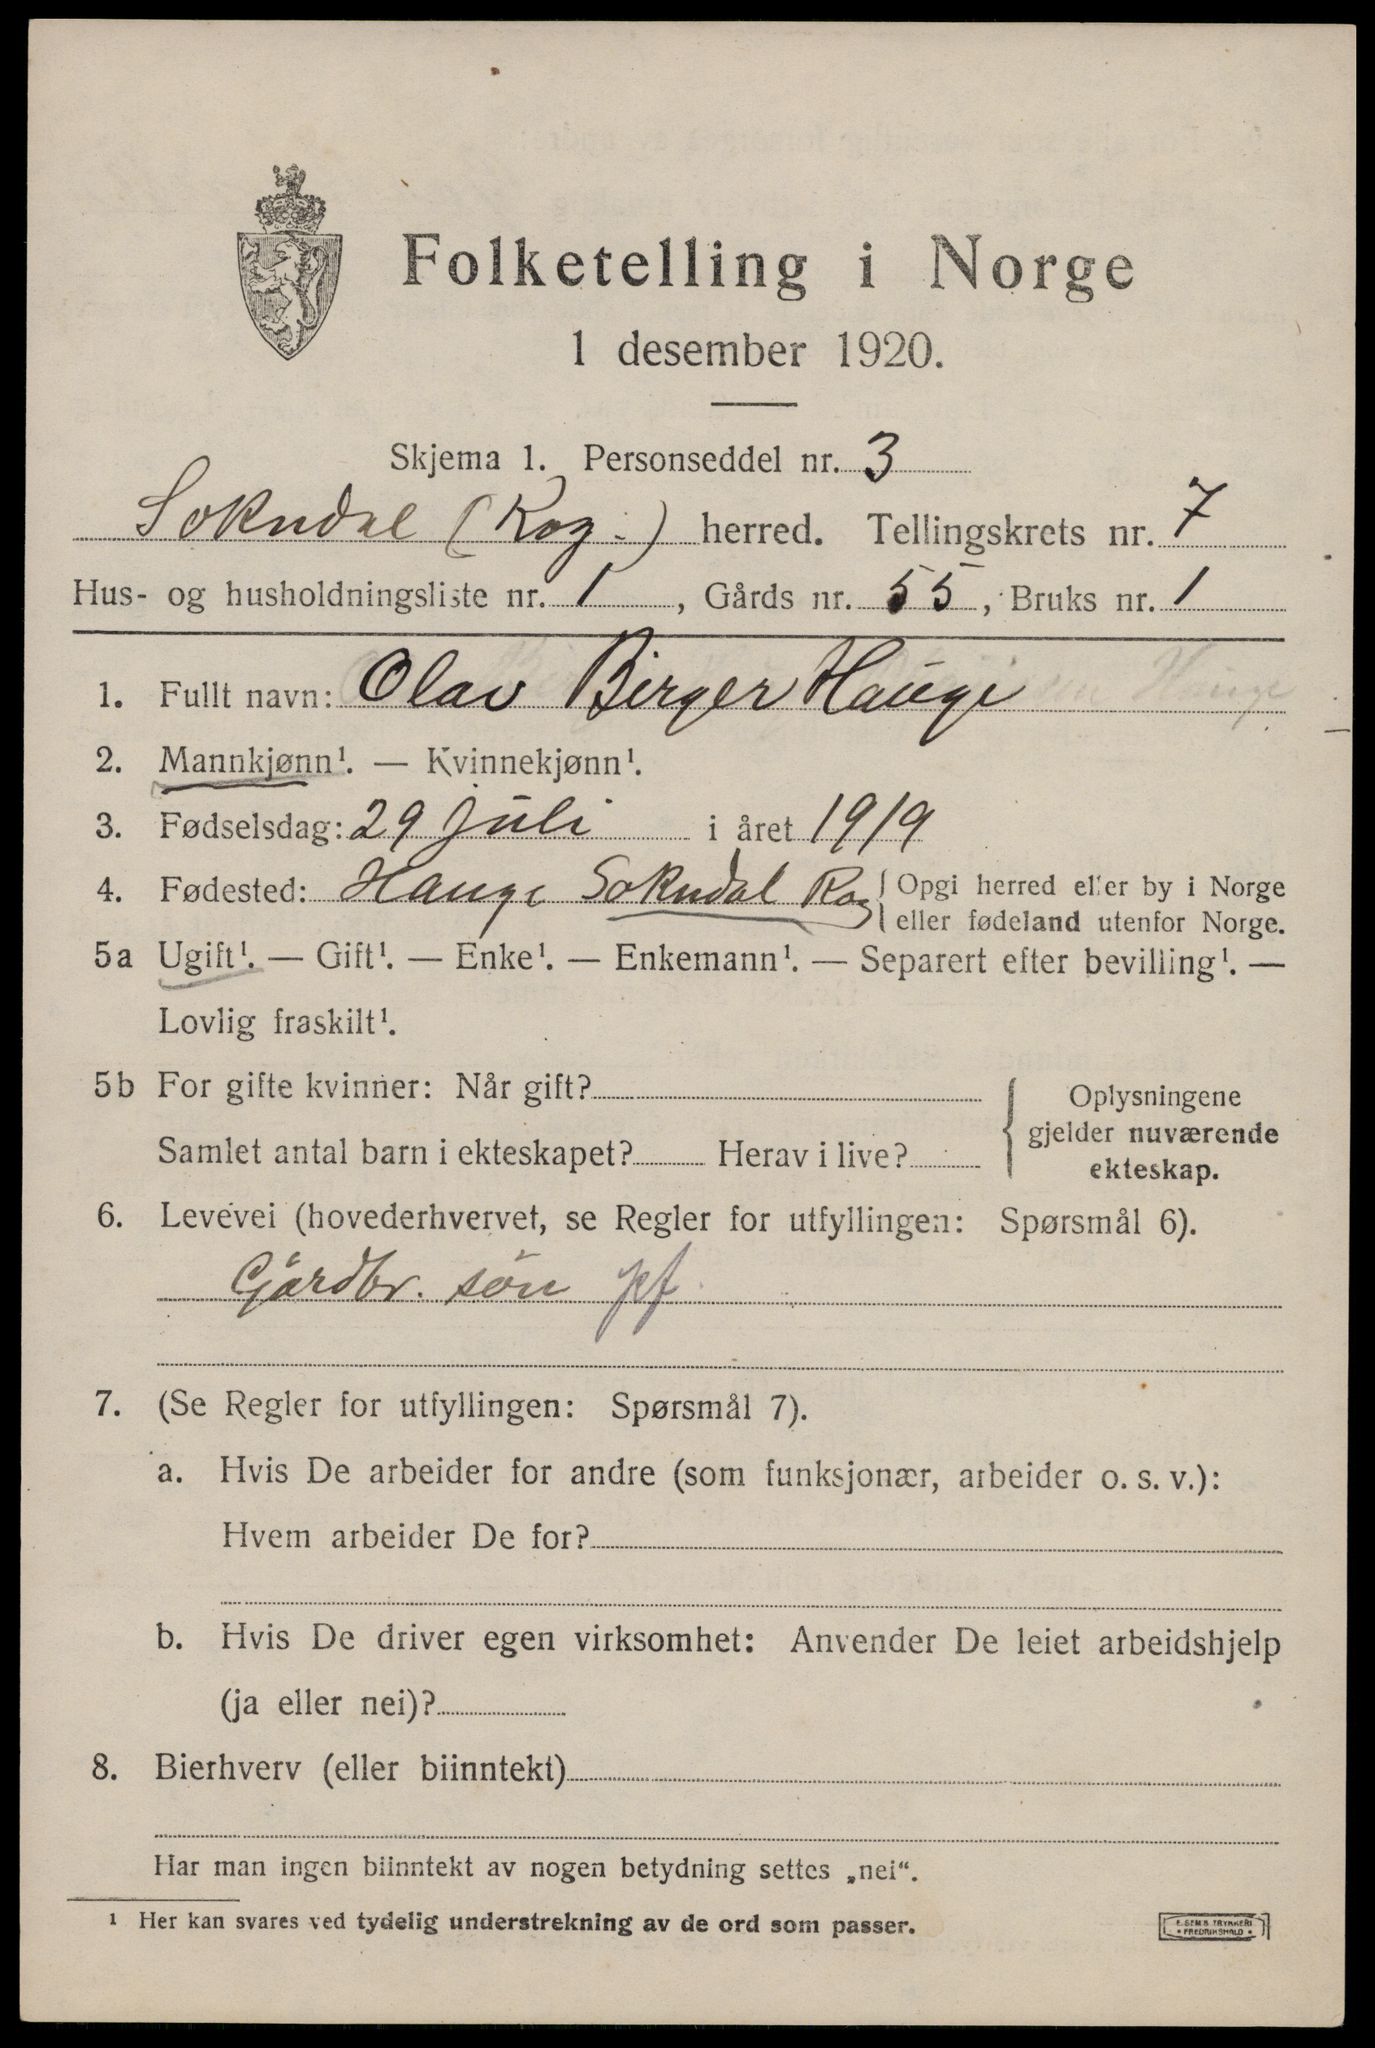 Folketelling i Norge
1 desember 1920.
Skjema 1. Personseddel nr. 3
Sokndal (Rog.) herred. Tellingskrets nr. 7
Hus- og husholdningsliste nr. 1, Gårds nr. 55, Bruks nr. 1
1. Fullt navn: Olav Birger Hauge
2. Mannkjønn¹. — Kvinnekjønn¹.
3. Fødselsdag: 29 juli i året 1919
4. Fødested: Hauge Sokndal Rog { Opgi herred eller by i Norge
eller fødeland utenfor Norge.
5a Ugift¹. — Gift¹. — Enke¹. — Enkemann¹. — Separert efter bevilling¹. —
Lovlig fraskilt¹.
5b For gifte kvinner: Når gift?
Samlet antal barn i ekteskapet? Herav i live?
{ Oplysningene
gjelder nuværende
ekteskap.
6. Levevei (hovederhvervet, se Regler for utfyllingen: Spørsmål 6).
Gårdbr. søn pf.
7. (Se Regler for utfyllingen: Spørsmål 7).
a. Hvis De arbeider for andre (som funksjonær, arbeider o. s. v.):
Hvem arbeider De for?
b. Hvis De driver egen virksomhet: Anvender De leiet arbeidshjelp
(ja eller nei)?
8. Bierhverv (eller biinntekt)
Har man ingen biinntekt av nogen betydning settes „nei“.
¹ Her kan svares ved tydelig understrekning av de ord som passer.
E. SEM'S TRYKKERI
• FREDRIKSHALD •